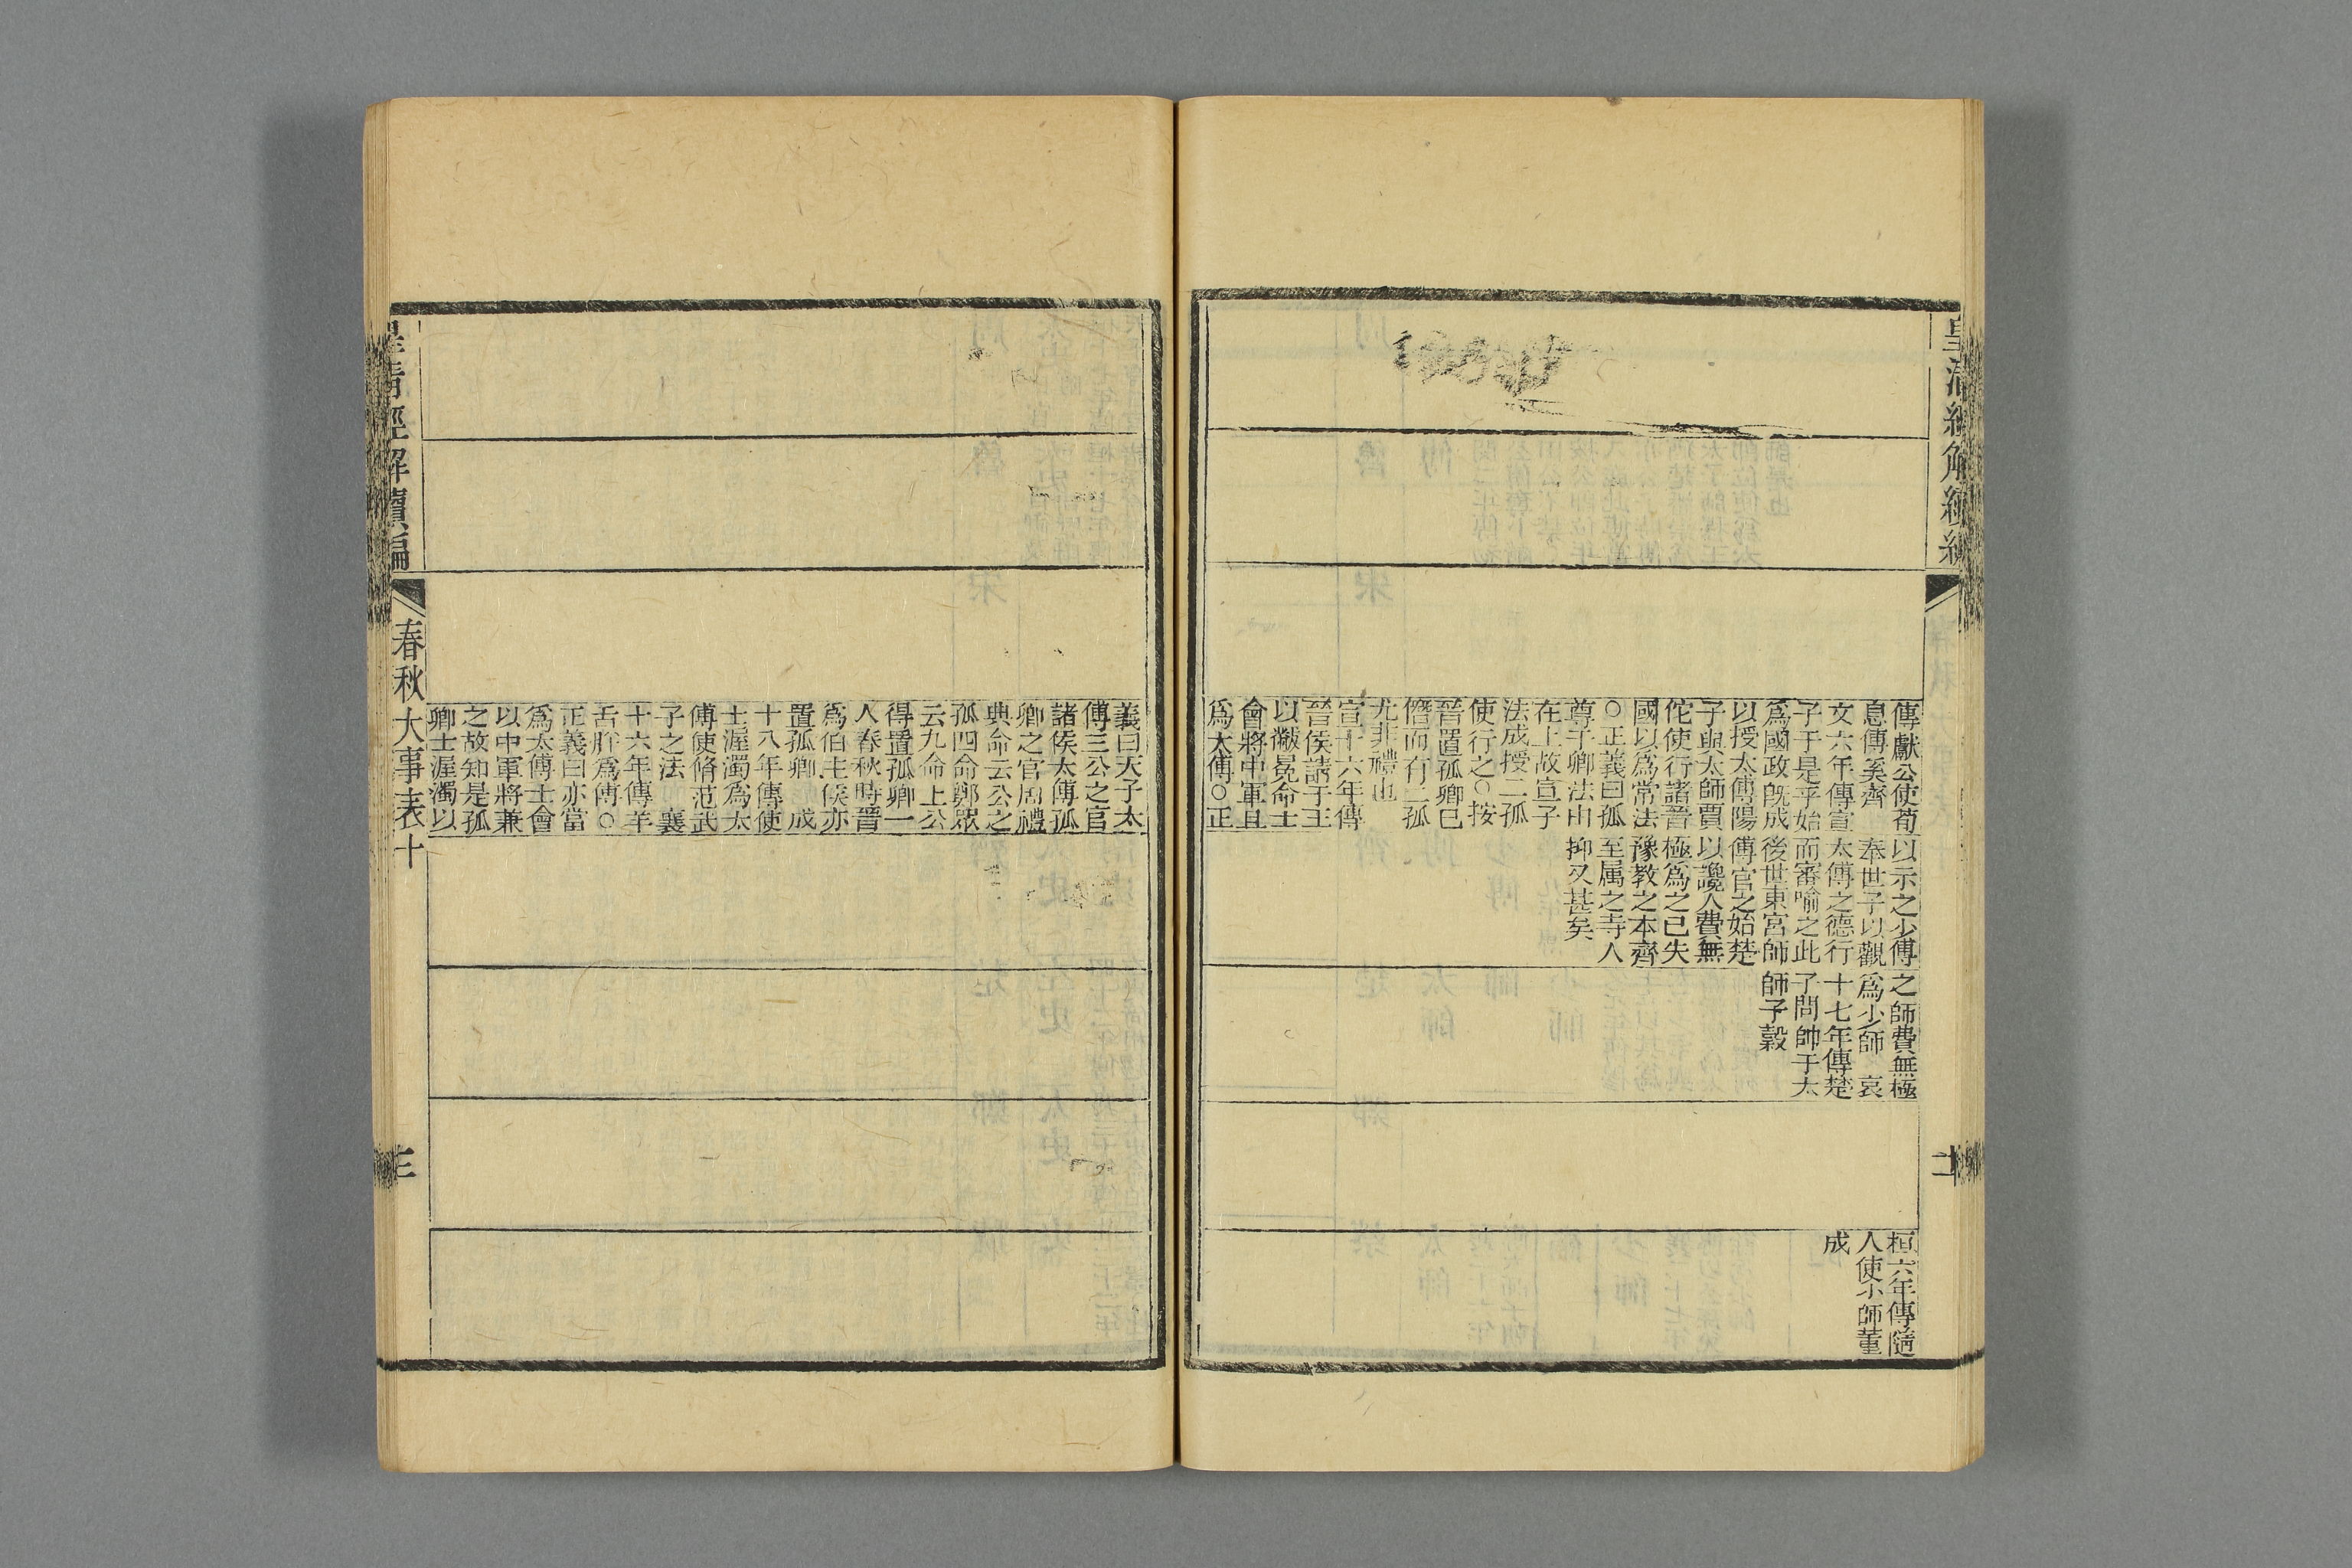 皇清經解續編
傳獻公使荀
息傅奚齊
文六年傳宣
子于是乎始
爲國政旣成
以授太傅陽
子與太師賈
佗使行諸晉
國以爲常法
○正義曰孤
尊于卿法由
在上故宣子
法成授二孤
使行之○按
晉置孤卿已
僭而有二孤
尤非禮也
宣十六年傳
晉侯請于王
以黻冕命士
會將中軍且
爲太傅○正
以示之少傅
奉世子以觀
太傅之德行
而審喻之此
後世東宮師
傅官之始楚
以讒人費無
極爲之已失
豫教之本齊
至属之寺人
抑又甚矣
之師費無極
爲少師 哀
十七年傳楚
子問帥于太
師子穀
桓六年傳隨
人使少師董
成
二
義曰天子太
傅三公之官
諸侯太傅孤
卿之官周禮
典命云公之
孤四命鄭眾
云九命上公
得置孤卿一
人春秋時晉
爲伯主侯亦
置孤卿 成
十八年傳使
士渥濁爲太
傅使脩范武
子之法 襄
十六年傳羊
舌肸爲傅○
正義曰亦當
爲太傅士會
以中軍將兼
之故知是孤
卿士渥濁以
皇清經解續編
春秋大事表十
三